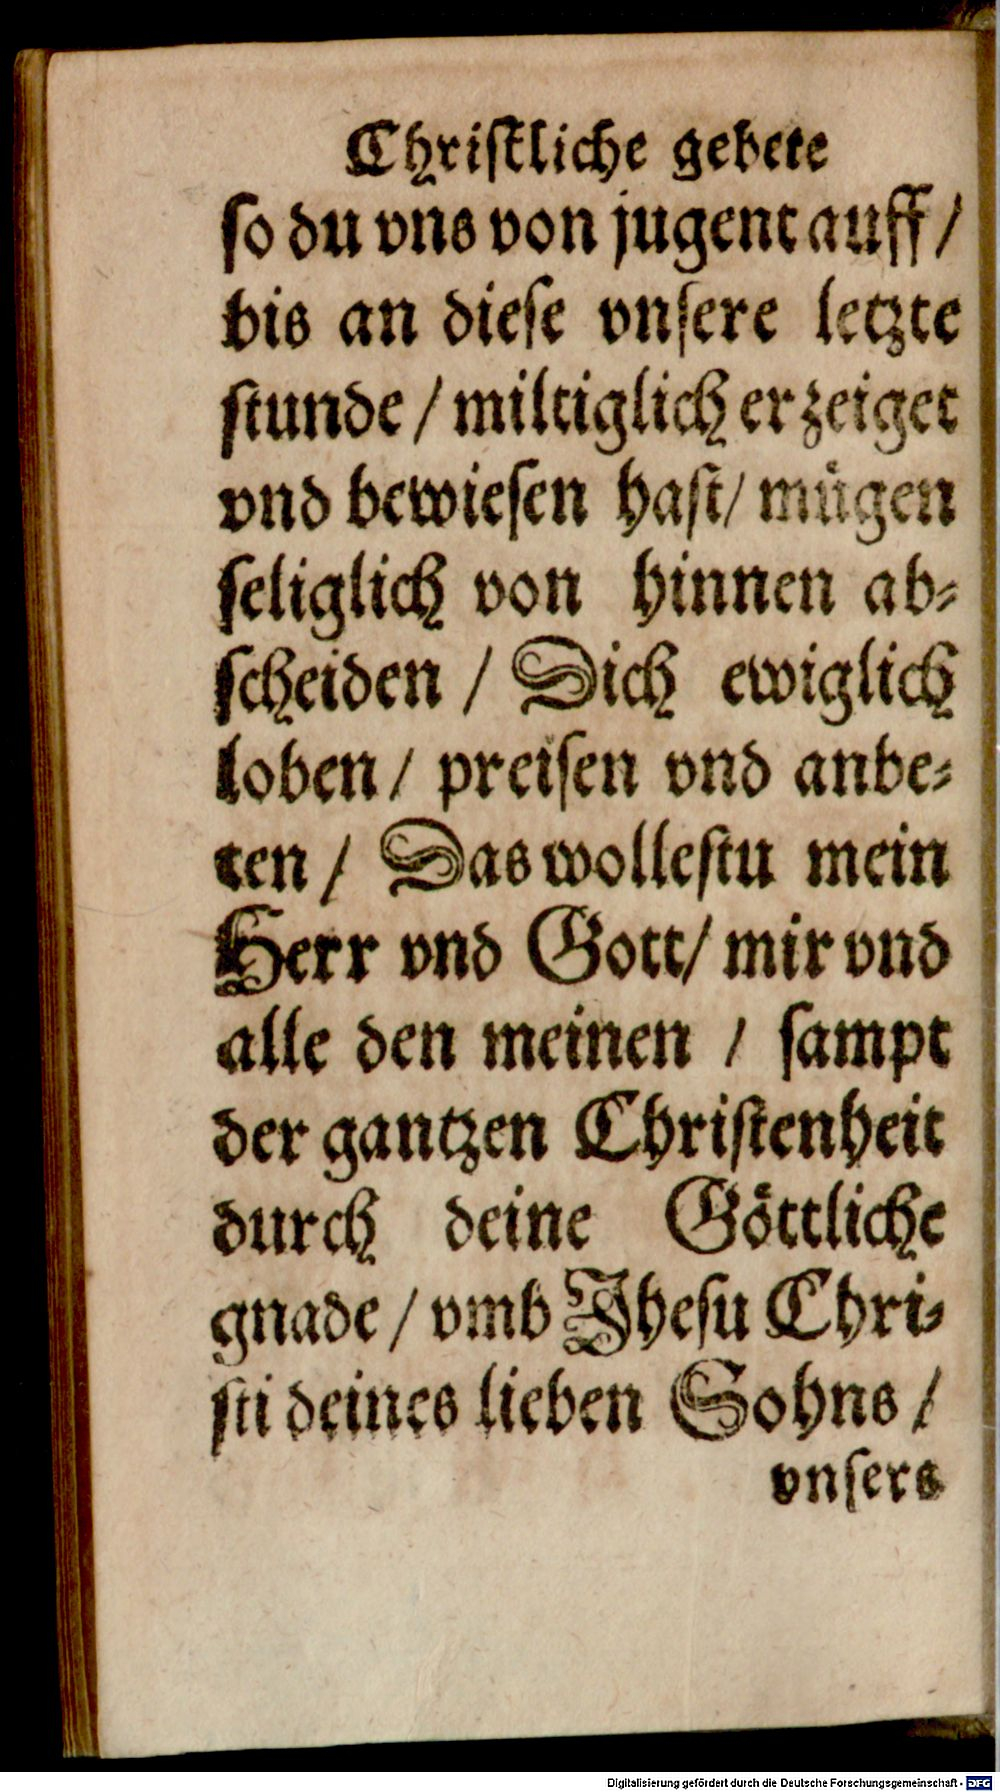 Chriſtliche gebete
ſo du vns von jugent auff /
bis an dieſe vnſere letzte
ſtunde / miltiglich erzeiget
vnd bewieſen haſt / muͤgen
ſeliglich von hinnen ab⸗
ſcheiden / Dich ewiglich
loben / preiſen vnd anbe⸗
ten / Das wolleſtu mein
Herr vnd Gott / mir vnd
alle den meinen / ſampt
der gantzen Chriſtenheit
durch deine Goͤttliche
gnade / vmb Jheſu Chri⸗
ſti deines lieben Sohns /
vnſers
Digitalisierung gefördert durch die Deutsche Forschungsgemeinschaft - DFG